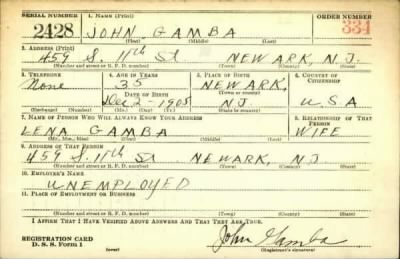 SERIAL NUMBER 1. NAME (Print) ORDER NUMBER
2428 JOHN GAMBA 334
(First) (Middle) (Last)
2. ADDRESS (Print)
459 S. 11th St NEWARK, N.J.
(Number and street or R. F. D. number) (Town) (County) (State)
3. TELEPHONE 4. AGE IN YEARS 5. PLACE OF BIRTH 6. COUNTRY OF CITIZENSHIP
None 35 NEWARK,
DATE OF BIRTH (Town or county)
Dec 2- 1905 N.J. U.S.A
(Exchange) (Number) (Mo.) (Day) (Yr.) (State or country)
7. NAME OF PERSON WHO WILL ALWAYS KNOW YOUR ADDRESS 8. RELATIONSHIP OF THAT PERSON
LENA GAMBA WIFE
(Mr., Mrs., Miss) (First) (Middle) (Last)
9. ADDRESS OF THAT PERSON
459 S. 11th St NEWARK, N.J
(Number and street or R. F. D. number) (Town) (County) (State)
10. EMPLOYER'S NAME
UNEMPLOYED
11. PLACE OF EMPLOYMENT OR BUSINESS
(Number and street or R. F. D. number) (Town) (County) (State)
I AFFIRM THAT I HAVE VERIFIED ABOVE ANSWERS AND THAT THEY ARE TRUE.
REGISTRATION CARD
D. S. S. FORM 1 (over) John Gamba
(Registrant's signature)